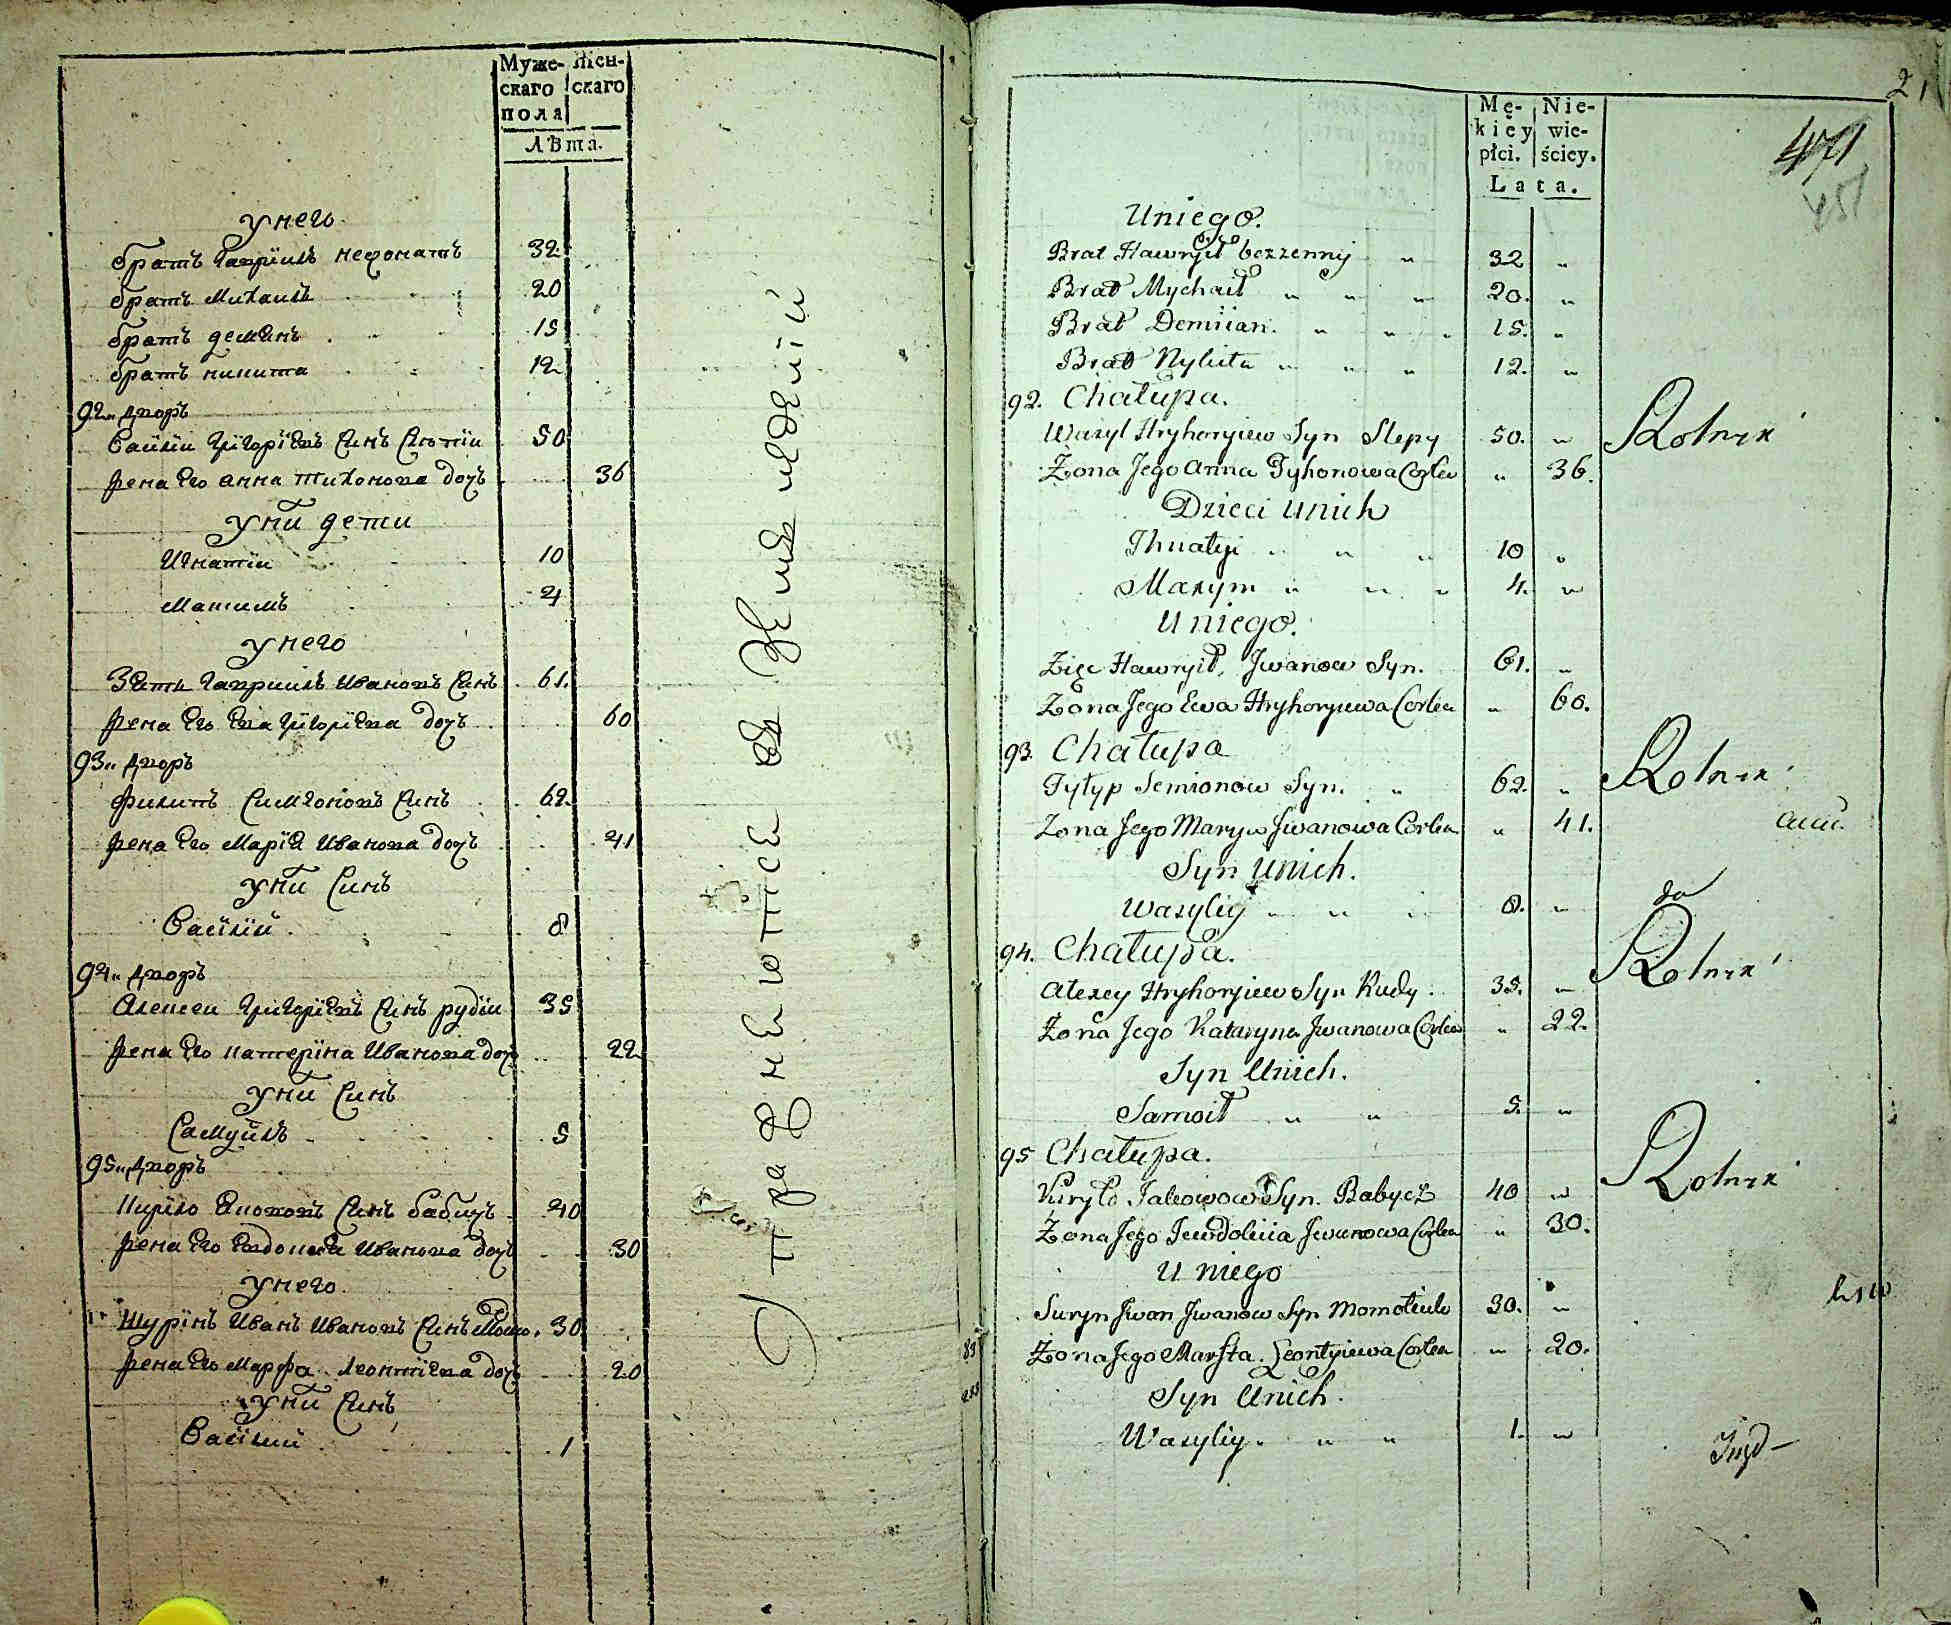 Муже- Жен-
скаго скаго
пола
Лѣта.
У него
братъ Гавріилъ нежонатъ 32
братъ Михаилъ 20
братъ демянъ 15
братъ никита 12
92 дворъ
Василіи Григоріевъ Синъ Слѣпіи 50
жена Его анна Тихонова доч 36
У ни дети
Игнатіи 10
Максимъ 4
У него
Зять Гавріилъ Ивановъ Синъ 61
жена Его Ева Григоріева доч 60
93 дворъ
Филипъ Симіоновъ Синъ 62
жена Его Марія Иванова доч 41
У ни Синъ
Василій 8
94 дворъ
Алексеи Григоріевъ Синъ рудіи 35
жена Его катеріна Иванова доч 22
У ни Синъ
Самуйлъ 5
95 дворъ
Кирило Якововъ Синъ бабичъ 40
жена Его Евдокия Иванова доч 30
У него
Шурінъ Иванъ Ивановъ Синъ 30
жена Его Марфа Леонтіева доч 20
У ни Синъ
Василий 1
упражнеютсе въ
21
471
451
Mę- Nie-
kiéy wie-
płci. ściey.
Lata.
U niego.
Brat Hawryił bezzenny " 32 "
Brat Mychaił " " " 20. "
Brat Demiian. " " " 15. "
Brat Nykita " " " 12. "
92. Chałupa.
Wasyl Hryhoryiew Syn Slepy 50. " Rolnik
Żona Jego Anna Tyhonowa Corka " 36.
Dzieci U nich
Ihnatyi " " " 10 "
Maxym " " " 4. "
U niego.
Zięc Hawryił, Jwanow Syn. 61. "
Żona Jego Ewa Hryhoryiewa Corka " 60.
93. Chałupa Rolnik
Fyłyp Semionow Syn. " 62. "
Żona Jego Marya Jwanowa Corka " 41.
Syn U nich.
Wasyliy " " " 8. "
94. Chałupa. Rolnik
Alexey Hryhoryiew Syn Rudy. 35. "
Żona Jego Kataryna Jwanowa Corka " 22.
Syn U nich.
Samoił " " 5. "
95 Chałupa. Rolnik
Kiryło Jakowow Syn. Babycz 40 "
Żona Jego Jewdokiia Jwanowa Corka " 30.
U niego
Suryn Jwan Jwanow Syn Momotiuk 30. "
Żona Jego Marfta. Leontyiewa Corka " 20.
Syn U nich.
Wasyliy. " " 1. "